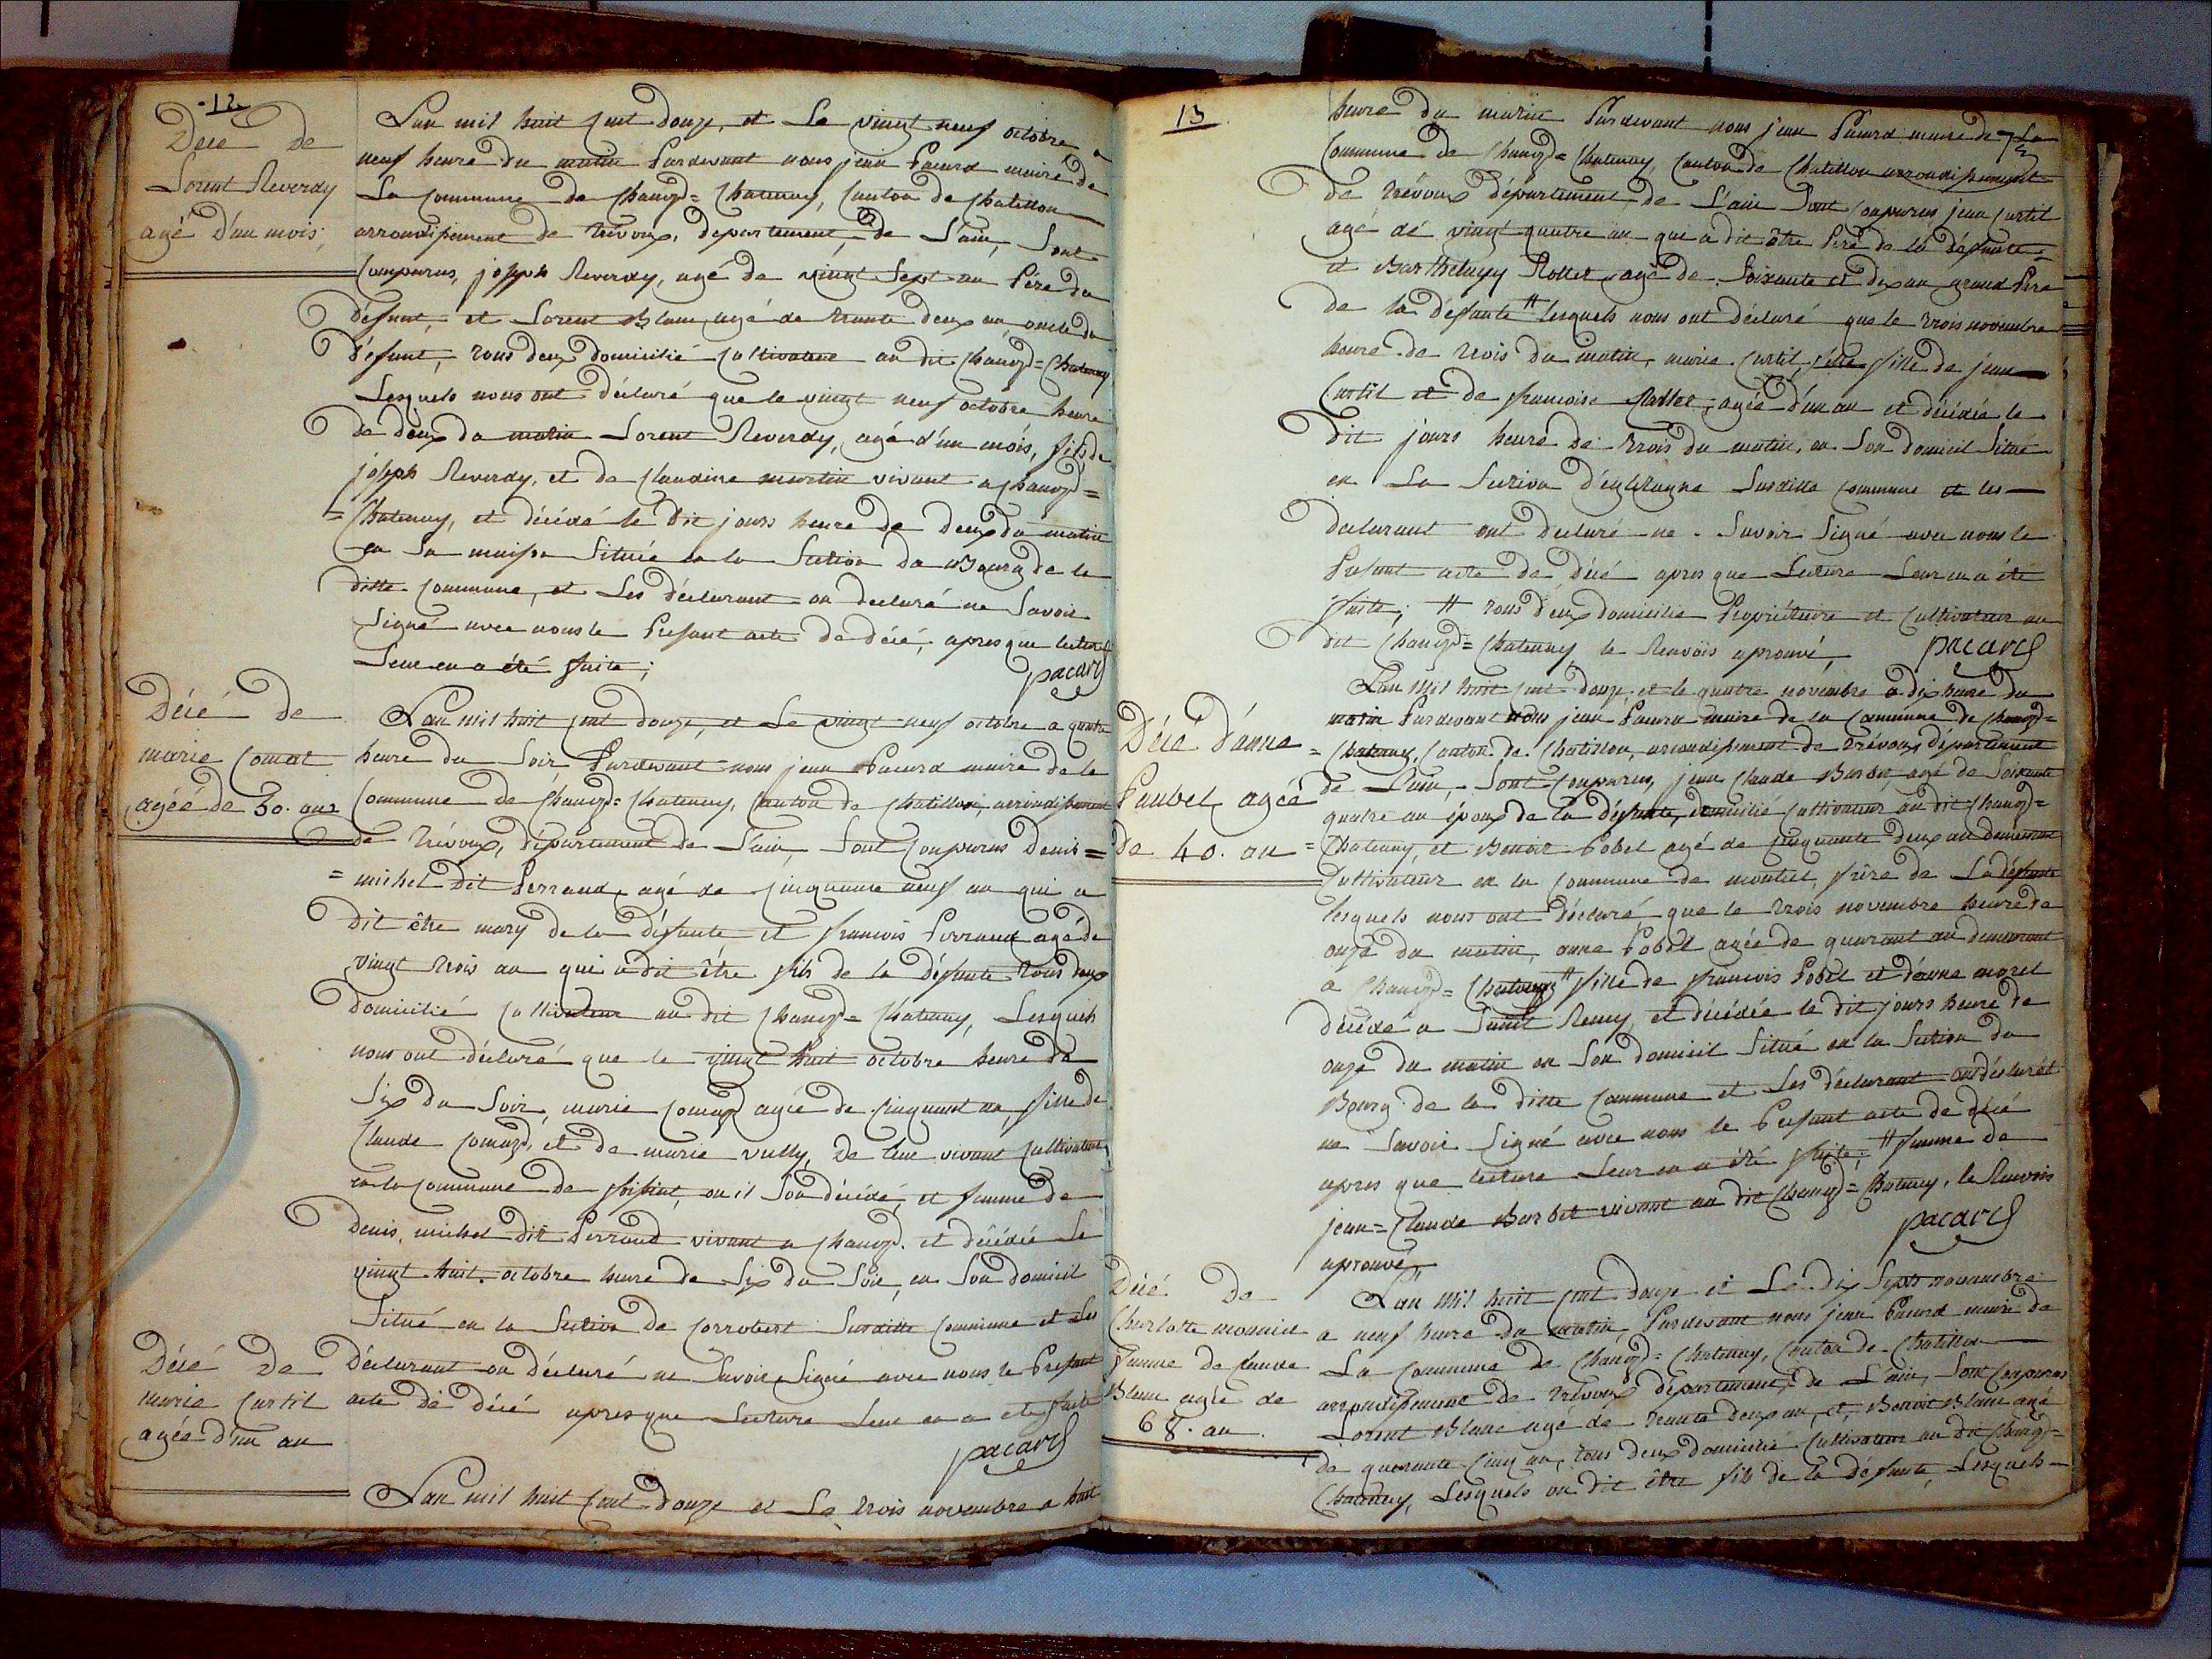 12
Décé de
Lorent Reverdy
agé d'un mois;
L'an mil huit cent douze, et Le vingt neuf octobre a
neuf heure du matin Pardevant nous jean Pacard maire de
La Commune de Chaneyz= Chatenay, Canton de Chatillon
arrondissement de trévoux, département de L'ain, Sont
Comparus, joseph Reverdy, agé de vingt Sept an Pére du
défunt, et Lorent Blanc agé de trante deux an, oncle du
défunt, tous deux domicilié Cultivateur au dit Chaneyz= Chatenay
Lesquels nous ont déclaré que le vingt neuf octobre heure
de deux du matin Lorent Reverdy, agé d'un mois, fils de
joseph Reverdy, et de Claudine martin vivant a Chaneyz=
= Chatenay, et décédé le dit jours heure de deux du matin
en sa maison Située en la Section du Bourg de la
ditte Commune, et Les déclarant on declaré ne Savoir
Signé avec nous le Présant acte de décé, apres que lecture
Leur en a été faite;
pacard
Décé de
marie Comat
agéé de 50. ans
L'an mil huit cent douze, et Le vingt neuf octobre a quatre
heure du Soir Pardevant nous jean Pacard maire de la
Commune de Chaneyz= Chatenay, Canton de Chatillon, arrondissement
de trévoux, département de L'ain, Sont Comparus Denis=
= michel dit Perraud, agé de cinquante neuf an qui a
dit être mary de la défunte et francois Perraud agé de
vingt trois an qui a dit être fils de la défunte tous deux
domicilié Cultivateur au dit Chaneyz= Chatenay, Lesquels
nous ont déclaré que le vingt huit octobre heure de
Six du Soir, marie agée de cinquant an, fille de
Claude et de marie vully, de leur vivant Cultivateur
en la Commune de ou il Son décédé, et femme de
Denis, michel dit Perraud vivant a Chaneyz. et décédée Le
vingt huit. octobre heure de Six du Soir, en Son domicil
Situé en la Section de Corrobert Susditte Commune et Les
Déclarant on déclaré ne Savoir Signé avec nous le Présant
acte de décé apres que Lecture Leur en a été faite
pacard
Décé de
marie Curtil
agée d'un an
L'an mil huit cent douze et Le trois novembre a huit
13
heure du matin Pardevant nous jean Pacard maire de La
Commune de Chaneyz= Chatenay, Canton de Chatillon arrondissement
de trévoux département de L'ain Sont Comparus jean Curtil
agé de vingt quatre an que a dit être Pére de la défunte=
et Barthelemy Rollet, agé de Soixante et dix an, grand Pere
de la défunte # lesquels nous ont déclaré que le trois novembre
heure de trois du matin, marie Curtil, fille de jean
Curtil et de francoise Rollet, agée d'un an et décédée le
dit jours heure de trois du matin, en Son domicil Situé
en La Section Susditte Commune et les
declarant ont declaré ne Savoir Signé avec nous le
Présant acte de décé apres que Lecture Leur en a été
faite; # tous deux domicilie Propriétaire et Cultivateur au
dit Chaneyz= Chatenay le Renvois aprouvé,
pacard
Décé d'anne
Paubel, agéé
de 40. an
L'an mil huit cent douze, et le quatre novembre a dix heure du
matin Pardevant nous jean Pacard maire de la Commune de Chaneyz=
= Chatenay, Canton de Chatillon, arrondissement de trévoux département
de L'ain, Sont Comparus, jean Claude Barbet, agé de Soixante
quatre an époux de la défunte, domicilié Cultivateur au dit Chaneyz=
= Chatenay, et Benoit Pobel agé de cinquante deux an demeurant
Cultivateur en la Commune de montiel, frère de La défunte
lesquels nous ont déclaré que le trois novembre heure de
onze du matin, anne Pobel agée de quarant an demeurant
a Chaneyz= Chatenay # fille de francois Pobel et d'anne morel
décédé a Saint Remy, et décédée le dit jours heure de
onze du matin en Son domicil Situé en la Section du
Bourg de la ditte Commune et Les déclarant ont déclaret
ne Savoir Signé avec nous le Présant acte de décé
apres que lecture Leur en a été faite; # femme de
jean= Claude Barbet vivant au dit Chaneyz= Chatenay, le Renvois
aprouvé,
pacard
Décé de
Charlotte
femme de Claude
Blanc agée de
68. an
L'an mil huit cent douze et Le dix Septs novembre
a neuf heure du matin, Pardevant nous jean Pacard maire de
La Commune de Chaneyz= Chatenay, Canton de Chatillon
arrondissement de trévoux département, de L'ain, Sont Comparus
Lorent Blanc agé de trante deux an, et, Benoit Blanc agé
de quarante cinq an, tous deux domicilié Cultivateur au dit Chaneyz=
Chatenay, Lesquels on dit être fils de la défunte, Lesquels